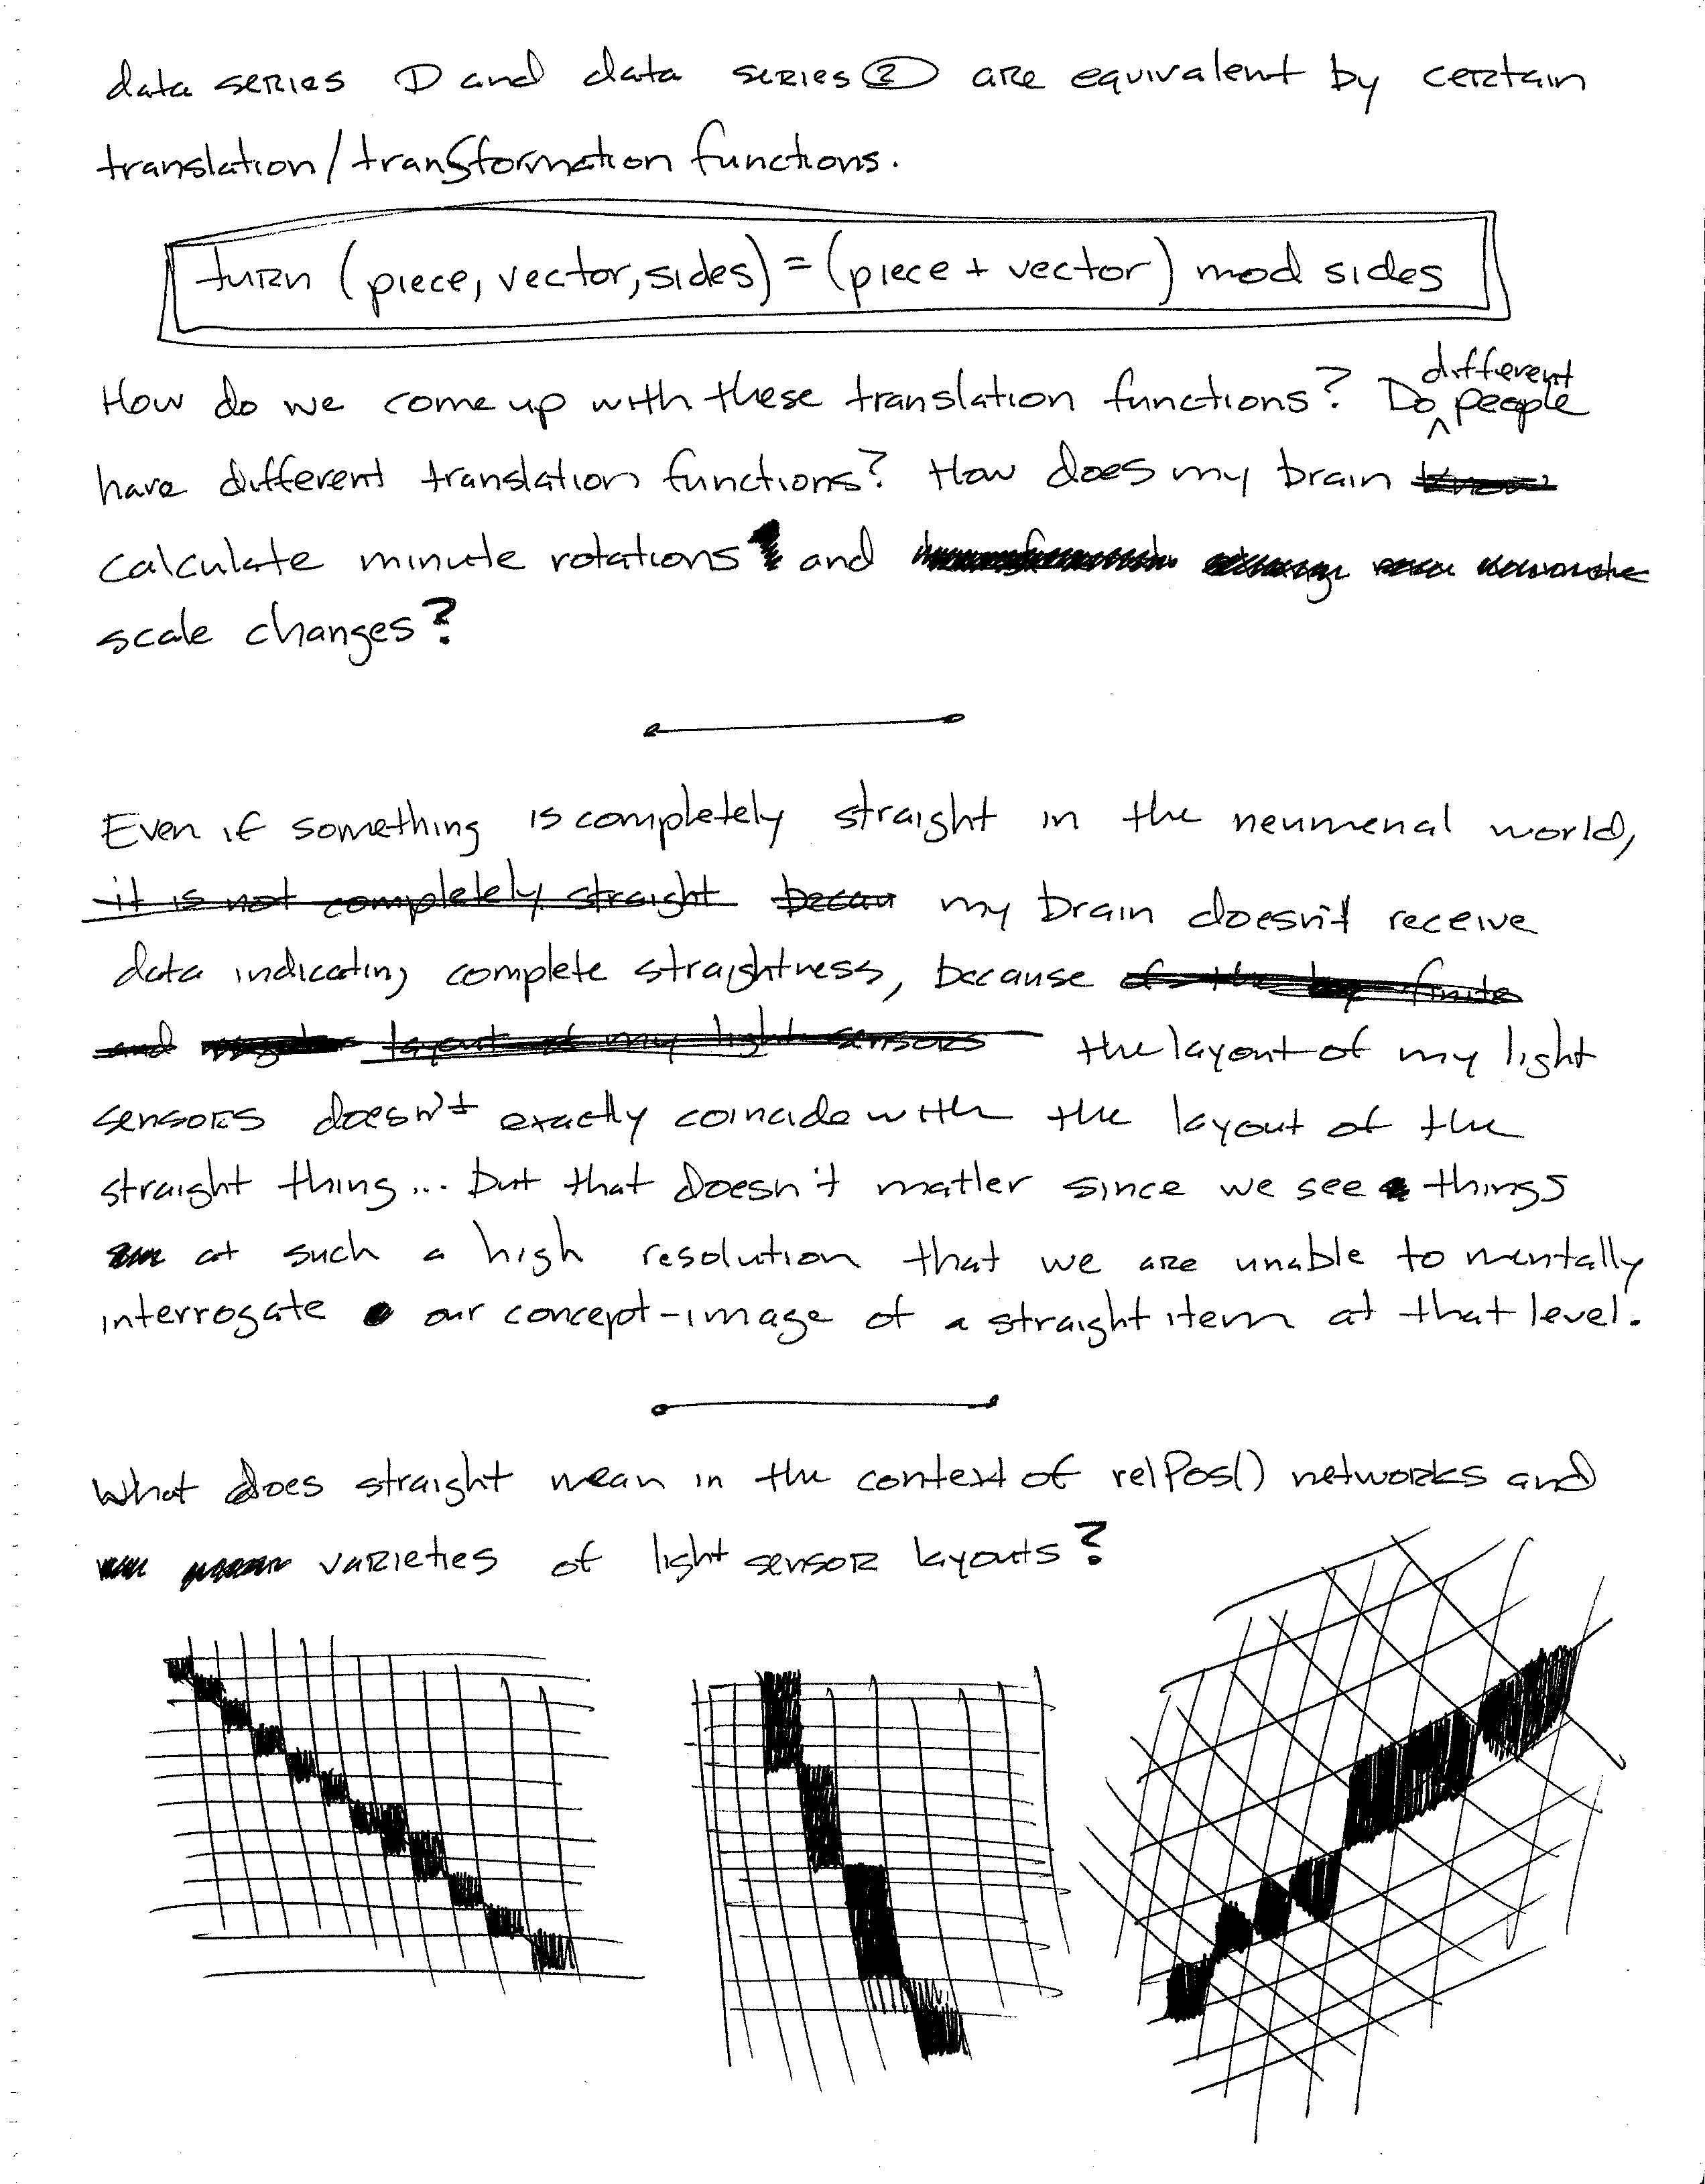 data series ① and data series ② are equivalent by certain
translation/transformation functions.
turn (piece, vector, sides) = (piece + vector) mod sides
How do we come up with these translation functions? Do different people
have different translation functions? How does my brain
calculate minute rotations and
scale changes?
Even if something is completely straight in the neumenal world,
it is not completely straight becau my brain doesn't receive
data indicating complete straightness, because of the finite
and layout of my light sensors the layout of my light
sensors doesn't exactly coincide with the layout of the
straight thing... but that doesn't matter since we see things
at such a high resolution that we are unable to mentally
interrogate our concept-image of a straight item at that level.
What does straight mean in the context of relPos() networks and
varieties of light sensor layouts?